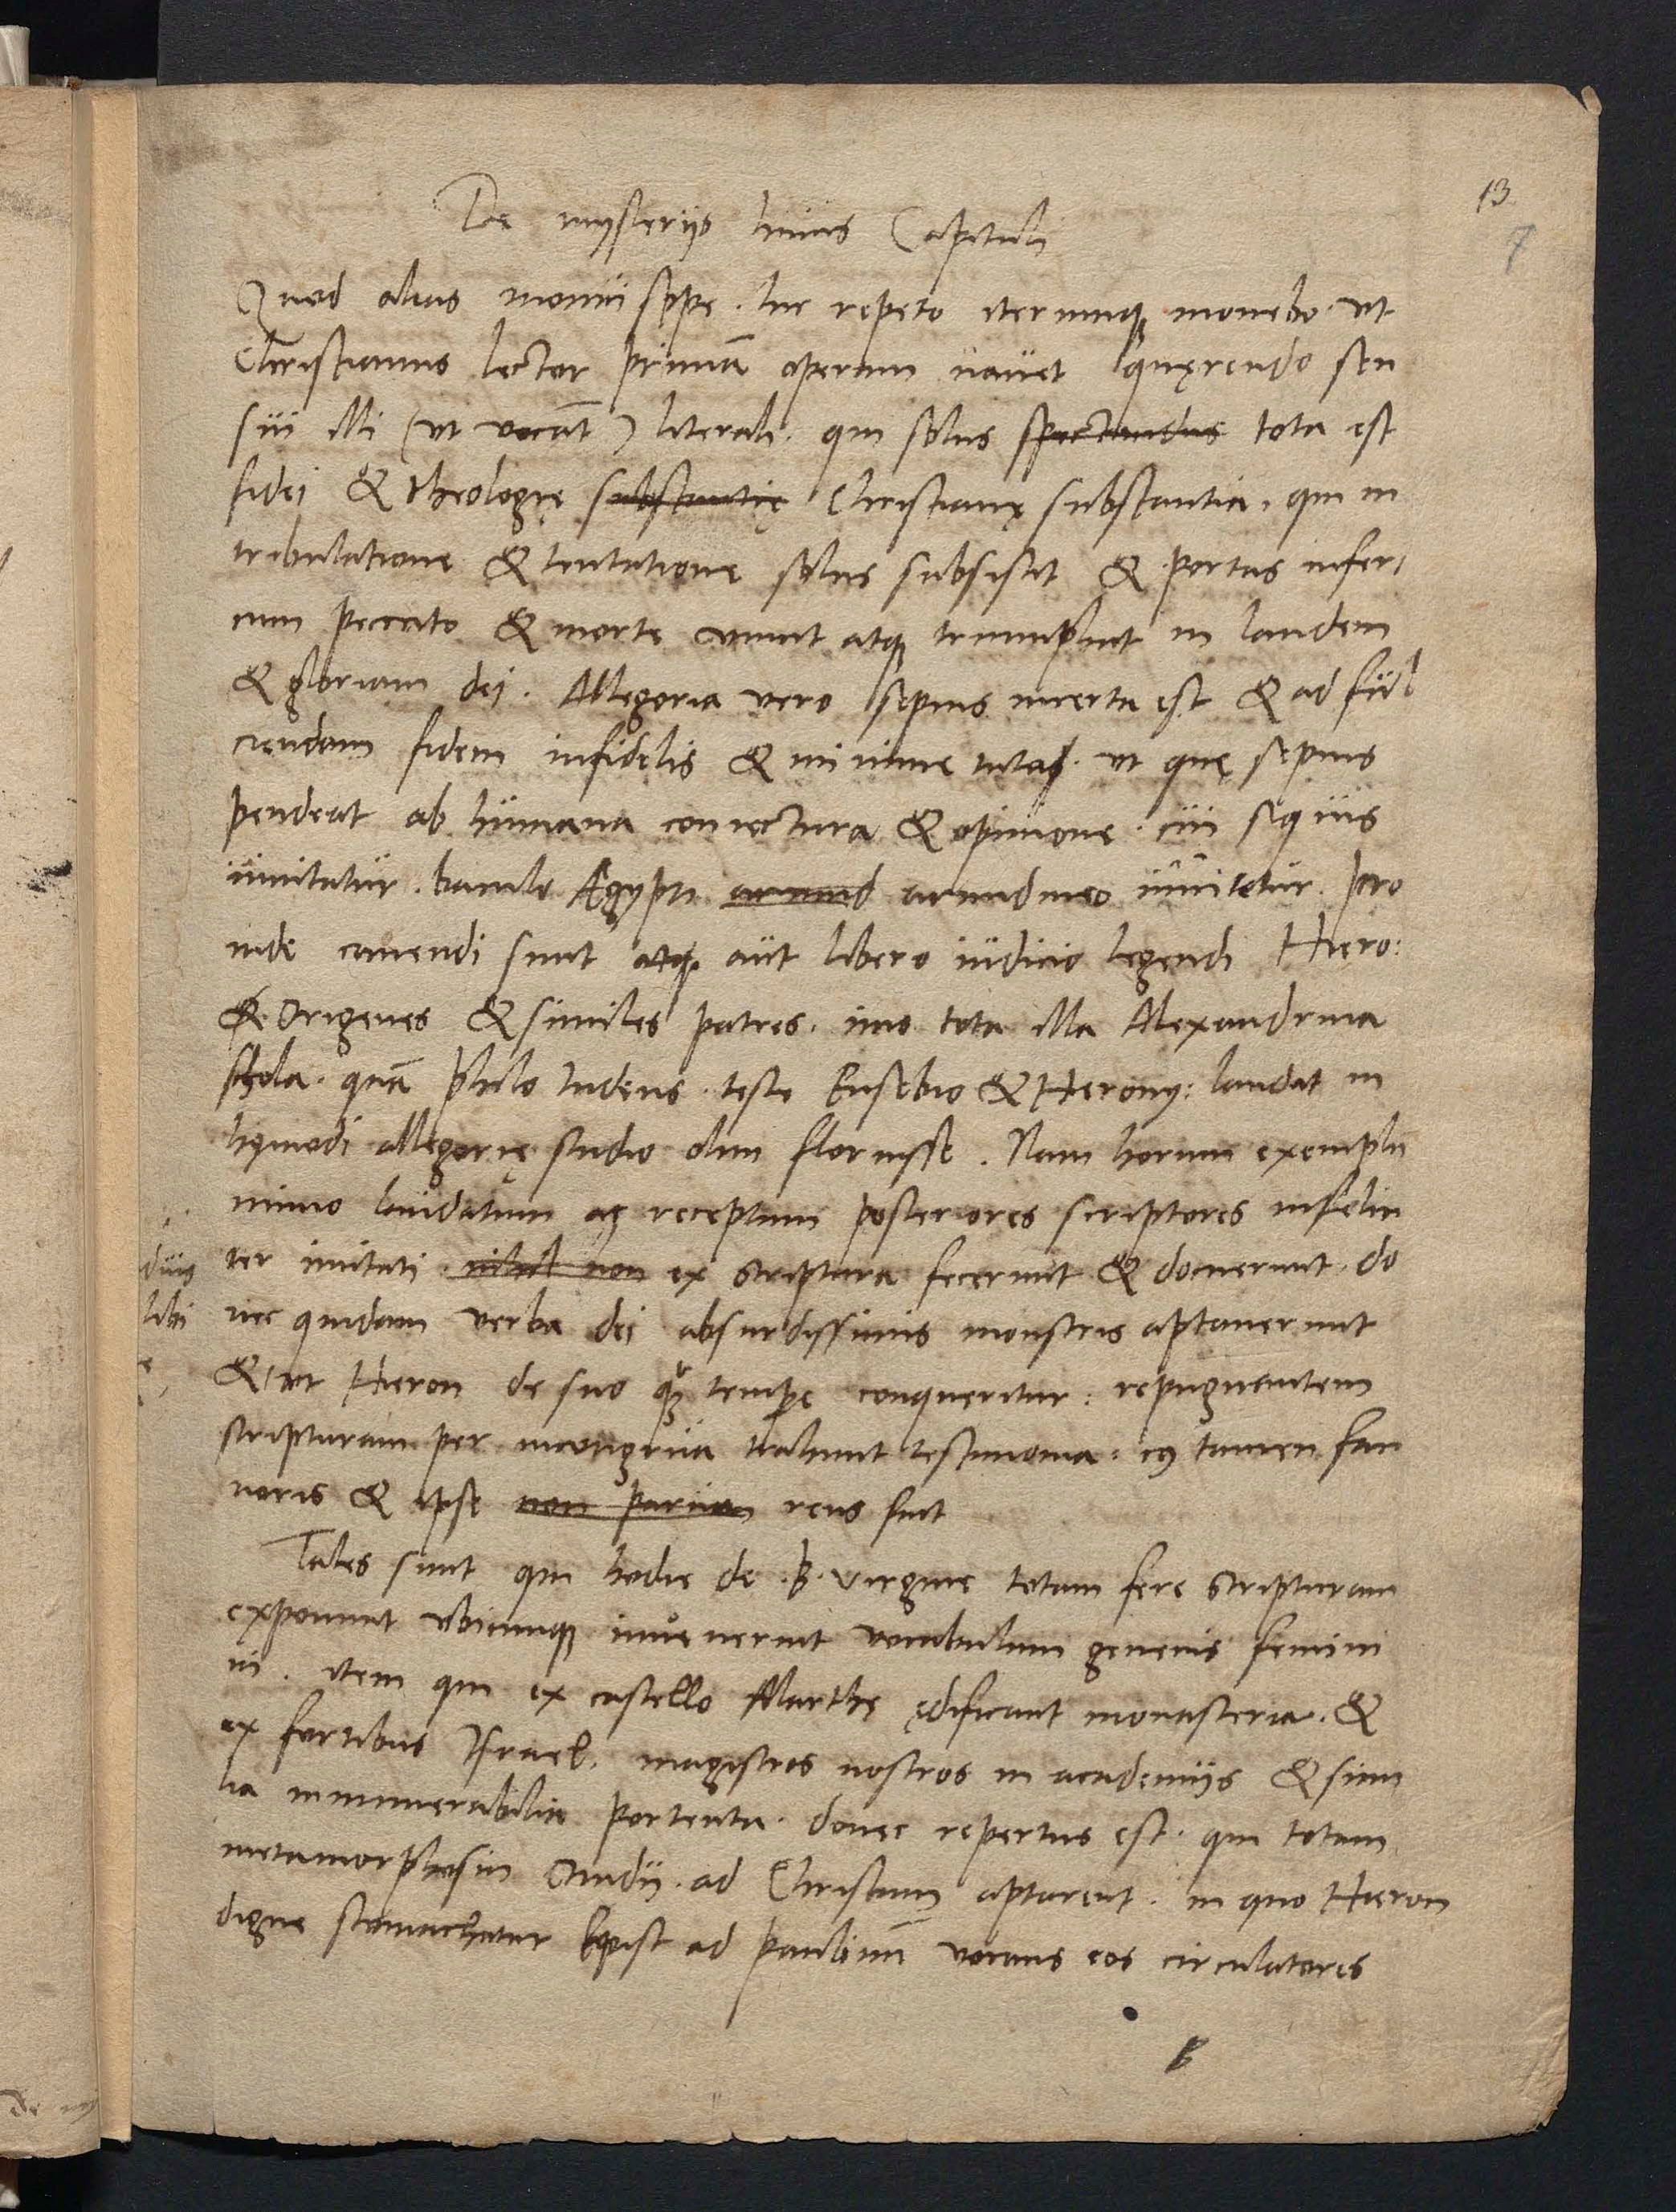 13
7
De mysterijs huius Capituli
Quod alias monui sępe. hic repeto iterumq monebo. vt
Christianus lector primā operam nauet quęrendo sen
sui illi (vt vocāt) literali. qui solus spectandus tota est
fidei & theologię substantię Christianę substantia. qui in
tribulatione & tentatione solus subsistit & portas inferi
cum peccato & morte vincit atq triumphat in laudem
& gloriam dei. Allegoria vero sępius incerta est & ad ful
ciendam fidem infidelis & minime tuta. vt quę sępius
pendeat ab humana coniectura & opinione. cui siquis
innitatur. baculo Ægypti arund arundineo innitetur. pro
inde cauendi sunt atq aut libero iudicio legendi Hiero:
& Origenes & similes patres. imo tota illa Alexandrina
schola. quā philo Iudeus. teste Eusebio & Hierony: laudat in
hmodi allegorię studio olim floruisse. Nam horum exemplū
nimio laudatum ac receptum posteriores scriptores infelici
ter imitati. nihil non ex scriptura fecerunt & docuerunt. do
nec quidam verba dei absurdissimis monstris aptauerunt
& vt Hieron de suo quoq tempore conqueritur: repugnantem
scripturam per incongrua trahunt testimonia: cuius tamen faci
noris & ipse non parum reus fuit
Tales sunt qui hodie de .B. virgine totam fere scripturam
exponunt vbicunq inuenerint vocabulum generis femini
ni. item qui ex castello Marthę ędificant monasteria. &
ex fortibus Israel. magistros nostros in academijs & simi
lia innumerabilia portenta. donec repertus est. qui totam
metamorphosin Ouidij. ad Christum aptarent. in quo Hieron
digne stomachatur Epist ad paulinū vocans eos circulatores